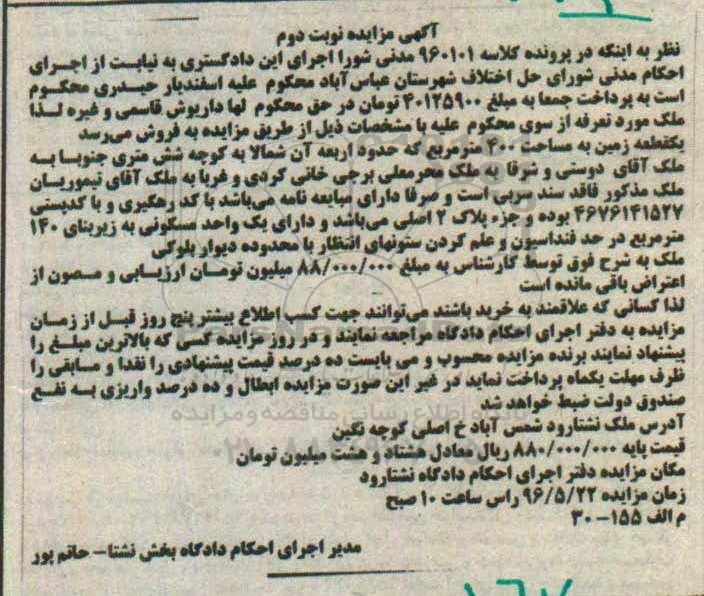 آگهی مزایده نوبت دوم
نظر به اینکه در پرونده کلاسه ۹۶۰۱۰۱ مدنی شورا اجرای این دادگستری به نیابت از اجرای
احکام مدنی شورای حل اختلاف شهرستان عباس آباد محکوم علیه اسفندیار حیدری محکوم
است به پرداخت جمعا به مبلغ ۴۰۱۲۵۹۰۰ تومان در حق محکوم لها داریوش قاسمی و غیره لذا
ملک مورد تعرفه از سوی محکوم علیه با مشخصات ذیل از طریق مزایده به فروش می‌رسد
یکقطعه زمین به مساحت ۲۰۰ مترمربع که حدود اربعه آن شمالا به کوچه شش متری جنوبا به
ملک آقای دوستی و شرقا به ملک محرمعلی برجی خانی کردی و غربا به ملک آقای تیموریان
ملک مذکور فاقد سند سربی است و صرفا دارای مبایعه نامه می‌باشد با کد رهگیری و با کدپستی
۴۶۷۶۱۴۱۵۲۷ بوده و جزء پلاک ۲ اصلی می‌باشد و دارای یک واحد مسکونی به زیربنای ۱۴۰
مترمربع در حد فنداسیون و علم کردن ستونهای انتظار با محدوده دیوار بلوکی
ملک به شرح فوق توسط کارشناس به مبلغ ۸۸/۰۰۰/۰۰۰ میلیون تومان ارزیابی و مصون از
اعتراض باقی مانده است
لذا کسانی که علاقمند به خرید باشند می‌توانند جهت کسب اطلاع بیشتر پنج روز قبل از زمان
مزایده به دفتر اجرای احکام دادگاه مراجعه نمایند و در روز مزایده کسی که بالاترین مبلغ را
پیشنهاد نمایند برنده مزایده محسوب و می بایست ده درصد قیمت پیشنهادی را نقدا و مابقی را
ظرف مهلت یکماه پرداخت نماید در غیر این صورت مزایده ابطال و ده درصد واریزی به نفع
صندوق دولت ضبط خواهد شد
آدرس ملک نشتارود شمس آباد خ اصلی کوچه نگین
قیمت پایه ۸۸۰/۰۰۰/۰۰۰ ریال معادل هشتاد و هشت میلیون تومان
مکان مزایده دفتر اجرای احکام دادگاه نشتارود
زمان مزایده ۹۶/۵/۲۲ راس ساعت ۱۰ صبح
م الف ۱۵۵-۳۰
مدیر اجرای احکام دادگاه بخش نشتا- حاتم پور